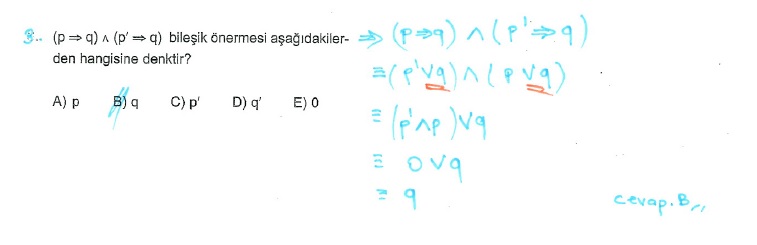 3.. (p ⇒ q) ∧ (p′ ⇒ q) bileşik önermesi aşağıdakiler-
den hangisine denktir?
A) p B) q C) p′ D) q′ E) 0
⇒ (p⇒q) ∧ (p'⇒q)
≡ (p'∨q) ∧ (p∨q)
≡ (p'∧p) ∨ q
≡ 0 ∨ q
≡ q
cevap.B,,